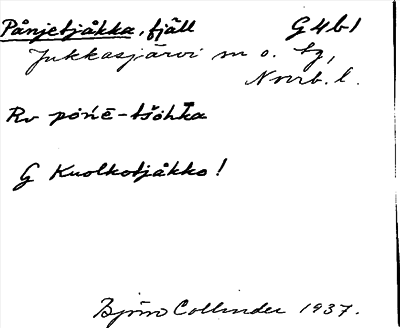 Pånjetjåkka, fjäll G4b1
Jukkasjärvi sn o. tg,
Norrb. l.
Rv pòńē-tšòhka
G Kuolkotjåkko!
Björn Collinder 1937.